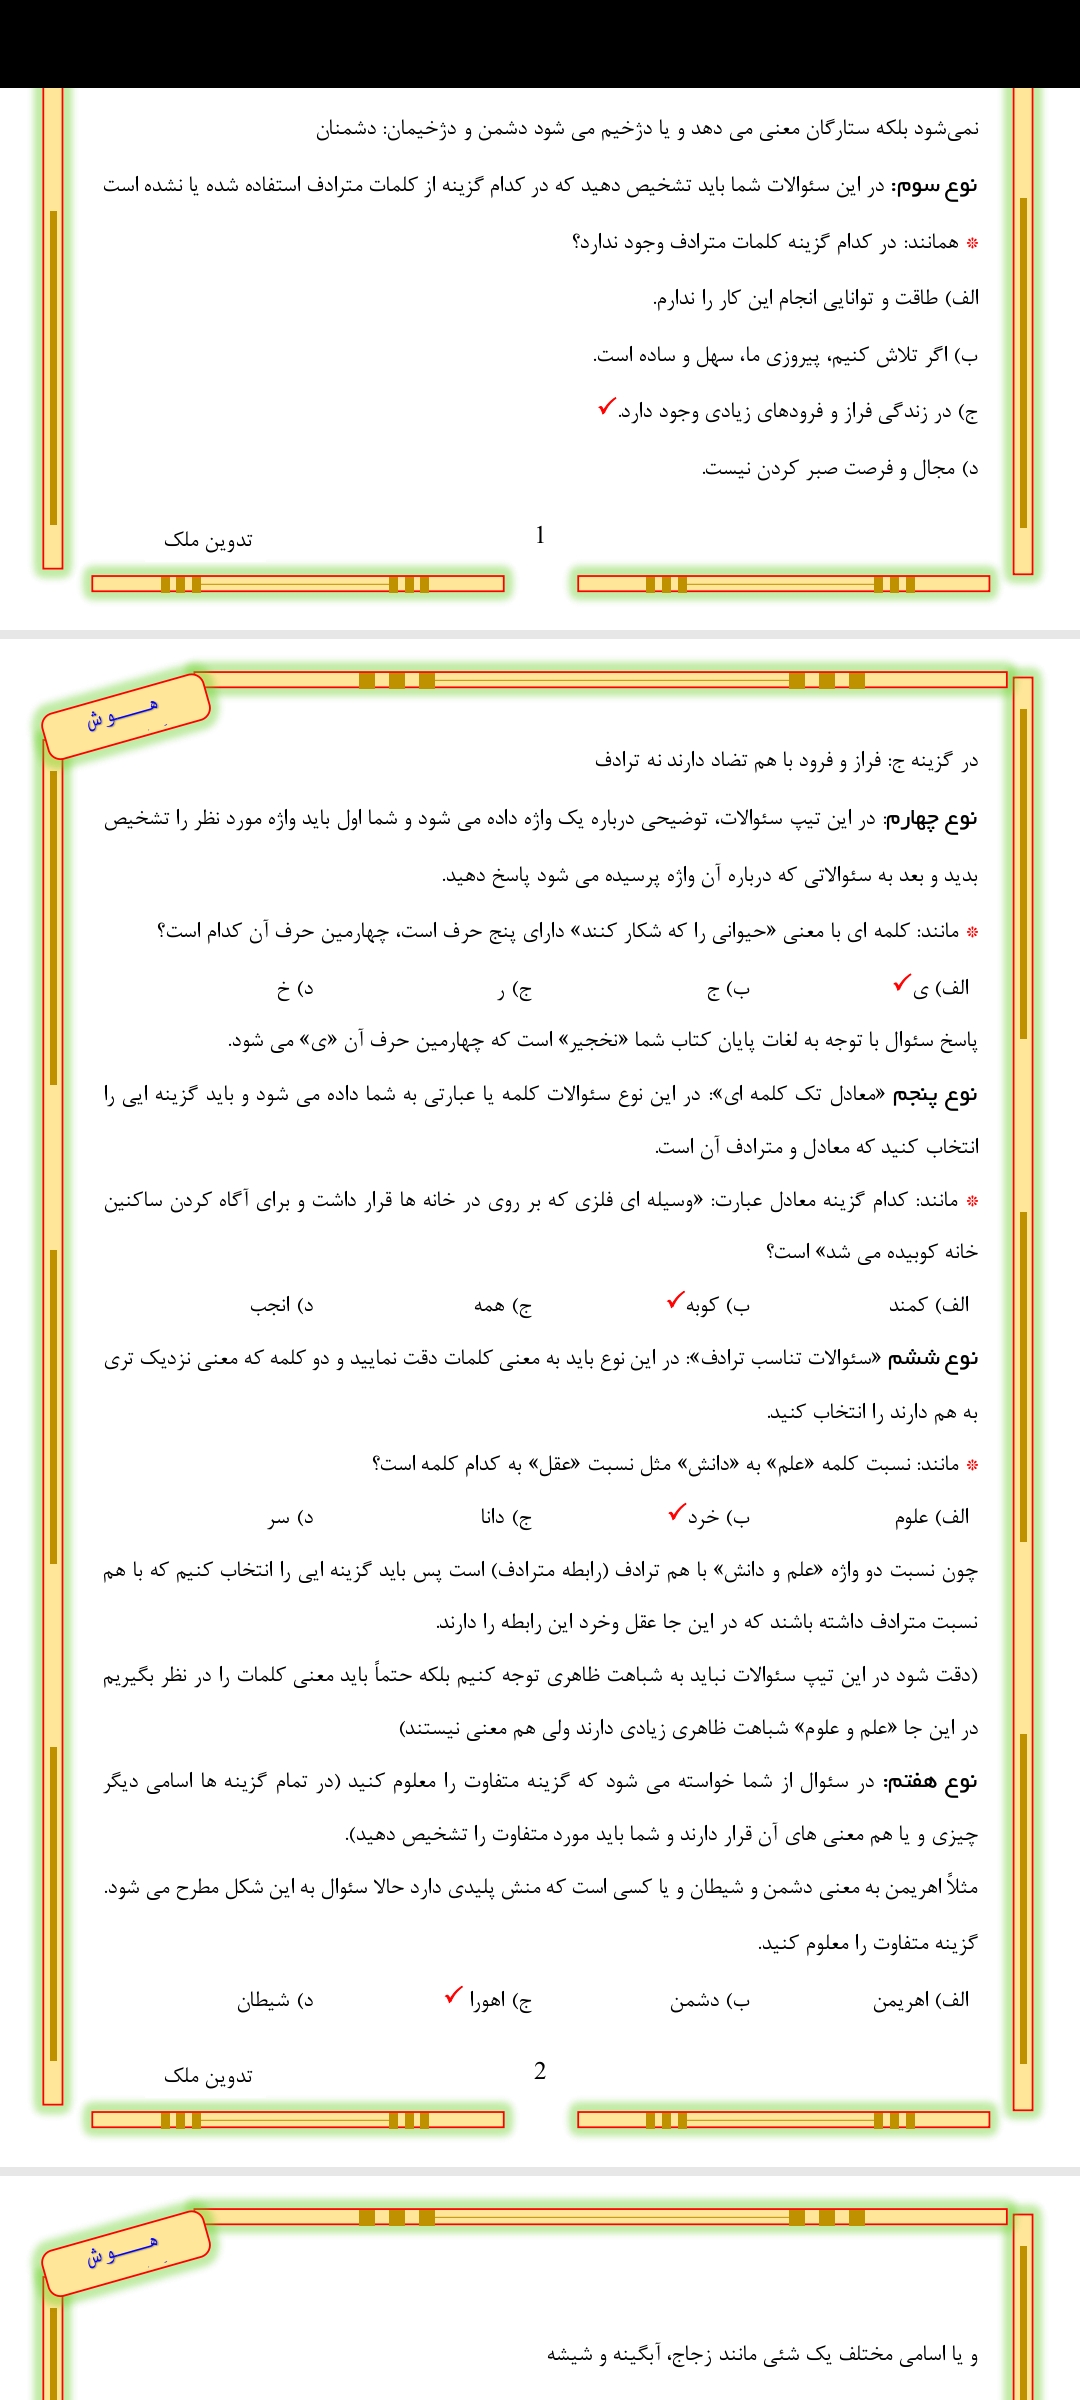 نمی‌شود بلکه ستارگان معنی می دهد و یا دژخیم می شود دشمن و دژخیمان: دشمنان
نوع سوم: در این سئوالات شما باید تشخیص دهید که در کدام گزینه از کلمات مترادف استفاده شده یا نشده است
* همانند: در کدام گزینه کلمات مترادف وجود ندارد؟
الف) طاقت و توانایی انجام این کار را ندارم.
ب) اگر تلاش کنیم، پیروزی ما، سهل و ساده است.
ج) در زندگی فراز و فرودهای زیادی وجود دارد. ✓
د) مجال و فرصت صبر کردن نیست.
1
تدوین ملک
هـــوش
در گزینه ج: فراز و فرود با هم تضاد دارند نه ترادف
نوع چهارم: در این تیپ سئوالات، توضیحی درباره یک واژه داده می شود و شما اول باید واژه مورد نظر را تشخیص
بدید و بعد به سئوالاتی که درباره آن واژه پرسیده می شود پاسخ دهید.
* مانند: کلمه ای با معنی «حیوانی را که شکار کنند» دارای پنج حرف است، چهارمین حرف آن کدام است؟
الف) ی ✓ ب) ج ج) ر د) خ
پاسخ سئوال با توجه به لغات پایان کتاب شما «نخجیر» است که چهارمین حرف آن «ی» می شود.
نوع پنجم «معادل تک کلمه ای»: در این نوع سئوالات کلمه یا عبارتی به شما داده می شود و باید گزینه ایی را
انتخاب کنید که معادل و مترادف آن است.
* مانند: کدام گزینه معادل عبارت: «وسیله ای فلزی که بر روی در خانه ها قرار داشت و برای آگاه کردن ساکنین
خانه کوبیده می شد» است؟
الف) کمند ب) کوبه ✓ ج) همه د) انجب
نوع ششم «سئوالات تناسب ترادف»: در این نوع باید به معنی کلمات دقت نمایید و دو کلمه که معنی نزدیک تری
به هم دارند را انتخاب کنید.
* مانند: نسبت کلمه «علم» به «دانش» مثل نسبت «عقل» به کدام کلمه است؟
الف) علوم ب) خرد ✓ ج) دانا د) سر
چون نسبت دو واژه «علم و دانش» با هم ترادف (رابطه مترادف) است پس باید گزینه ایی را انتخاب کنیم که با هم
نسبت مترادف داشته باشند که در این جا عقل وخرد این رابطه را دارند.
(دقت شود در این تیپ سئوالات نباید به شباهت ظاهری توجه کنیم بلکه حتماً باید معنی کلمات را در نظر بگیریم
در این جا «علم و علوم» شباهت ظاهری زیادی دارند ولی هم معنی نیستند)
نوع هفتم: در سئوال از شما خواسته می شود که گزینه متفاوت را معلوم کنید (در تمام گزینه ها اسامی دیگر
چیزی و یا هم معنی های آن قرار دارند و شما باید مورد متفاوت را تشخیص دهید).
مثلاً اهریمن به معنی دشمن و شیطان و یا کسی است که منش پلیدی دارد حالا سئوال به این شکل مطرح می شود.
گزینه متفاوت را معلوم کنید.
الف) اهریمن ب) دشمن ج) اهورا ✓ د) شیطان
2
تدوین ملک
هـــوش
و یا اسامی مختلف یک شئی مانند زجاج، آبگینه و شیشه